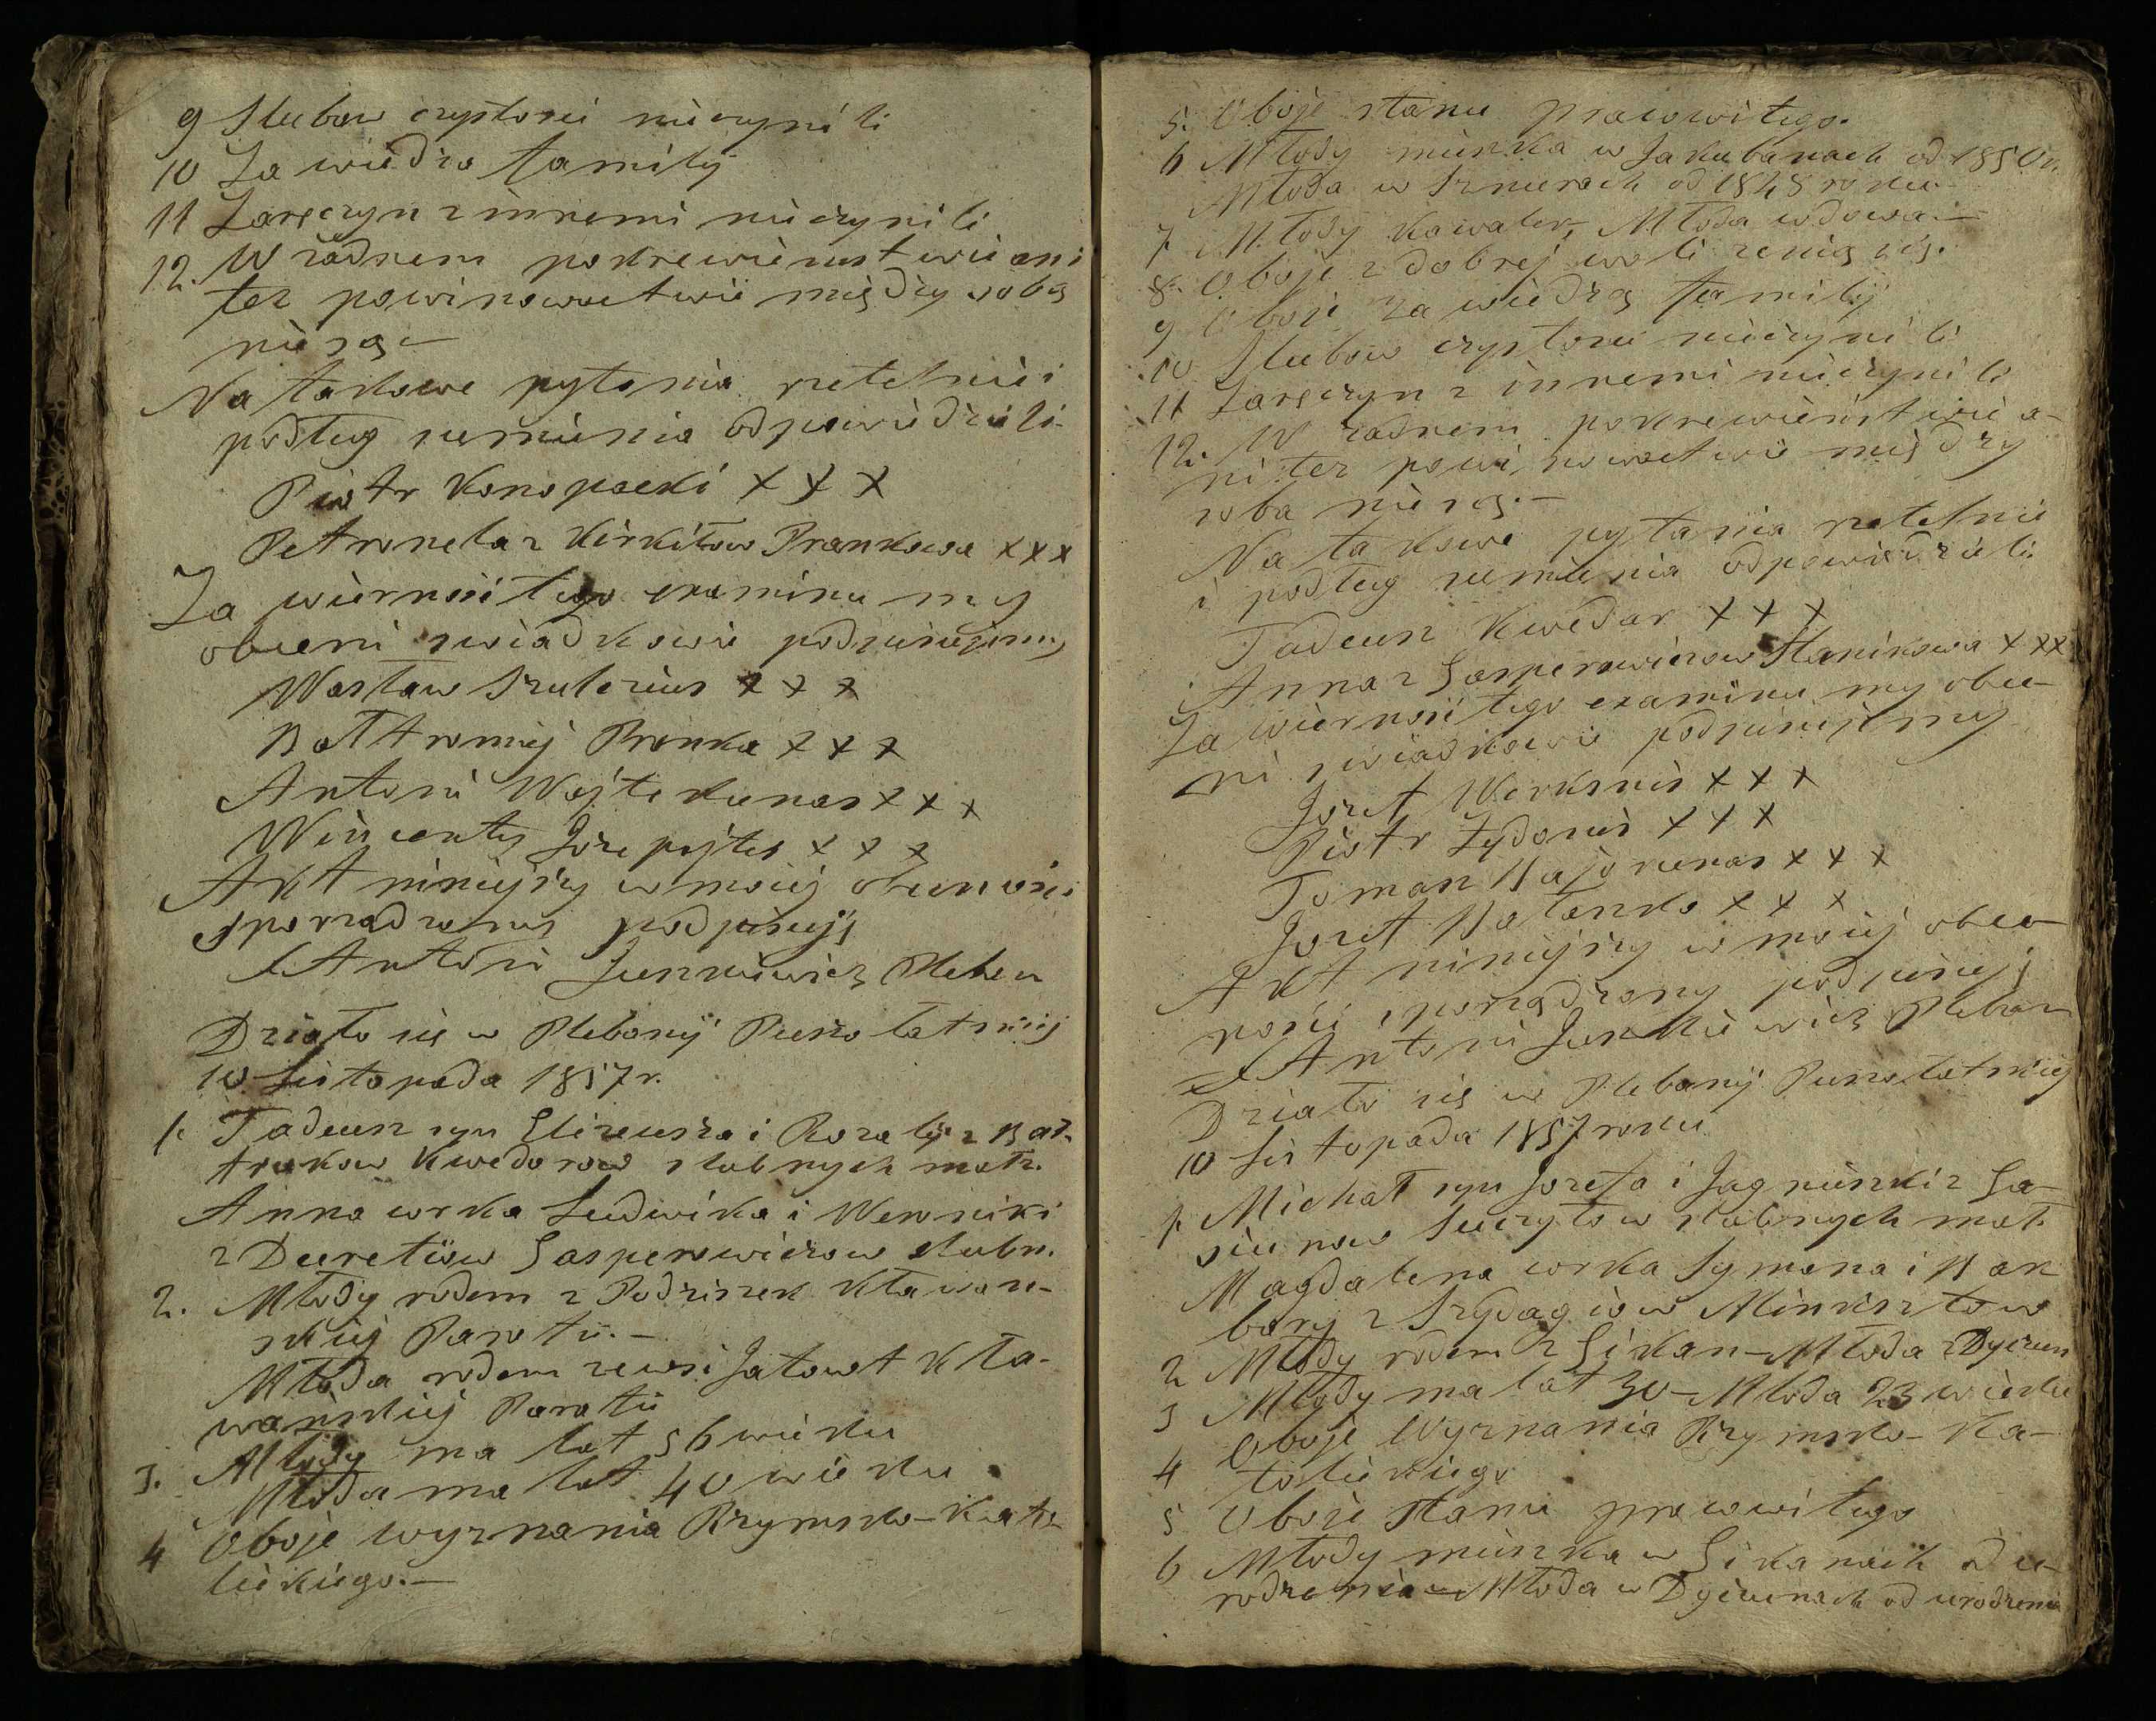 9 Slubow czystosci nieczynili
10 Za wiedzo familij
11 Zaręczyn z innemi nieczynili
12. W żadnem pokrewienstwie ani
tez powinowactwie między sobą
niesą —
Na takowe pytania rzetelnie i
podług sumienia odpowiedzieli.
Piotr Konopacki x x x
Petronela z Kirkiłow Prankowa x x x
Za wiernosć tego examinu my
obecni swiadkowie podpisujemy
Wasław Szulcius x x x
Bałtromiej Pranka x x x
Antoni Wojtekunas x x x
Wincenty x x x
Akt niniejszy w mojej obecnosci
sporządzony podpisuję
X Antoni Junkiewicz Pleban
Działo się w Plebanij Puszołatskiej
10 Listopada 1857 r.
1. Tadeusz syn Elizeusza i Rozalij z Bał-
trukow Kwedarow slubnych małż.
Anna corka Ludwika i Weroniki
z Gasperowiczow slubn.
2. Młody rodem z Podziszek Kławan-
skiej Parafii. —
Młoda rodem ze wsi Jatowt Kła-
wanskiej Parafii
3. Młody ma lat 56 wieku
Młoda ma lat 40 wieku
4 Oboje wyznania Rzymsko-Kato-
lickiego. —
5. Oboje stanu prawowitego.
6 Młody mieszka w Jakubanach od 1850 r.
Młoda w Sznurach od 1848 roku —
7. Młody Kawaler, Młoda wdowa —
8. Oboje z dobrej woli zenią się.
9 Oboje za wiedzą familij
10 Slubow czystosci nieczynili
11 Zaręczyn z innemi nieczynili
12. W żadnem pokrewieństwie a-
ni tez powinowactwie między
soba niesą. —
Na takowe pytania rzetelnie
i podług sumienia odpowiedzieli
Tadeusz Kwedar x x x
Anna z Gasperowiczow Stanikowa x x x
Za wiernosć tego examinu my obec-
ni swiadkowie podpisujemy
Jozef Werksnis x x x
Piotr Żydonis x x x
Toman Bajorunas x x x
Jozef x x x
Akt niniejszy w mojej obec-
nosci sporządzony podpisuję
X Antoni Junkiewicz Pleban
Działo się w Plebanij Puszołatskiej
10 Listopada 1857 roku
1. Michał syn Jozefa i Jagnieszki z Ga-
siunow slubnych małż.
Magdalena corka Symona i Bar
bary z Szydagiow Minksztow
2 Młody rodem z Gikan — Młoda z Dyczun
3 Młody ma lat 30 — Młoda 23 wieku
4 Oboje Wyznania Rzymsko-Ka-
tolickiego
5 Oboje stanu prawowitego
6 Młody mieszka w Gikanach od u-
rodzenia — Młoda w Dyczunach od urodzenia